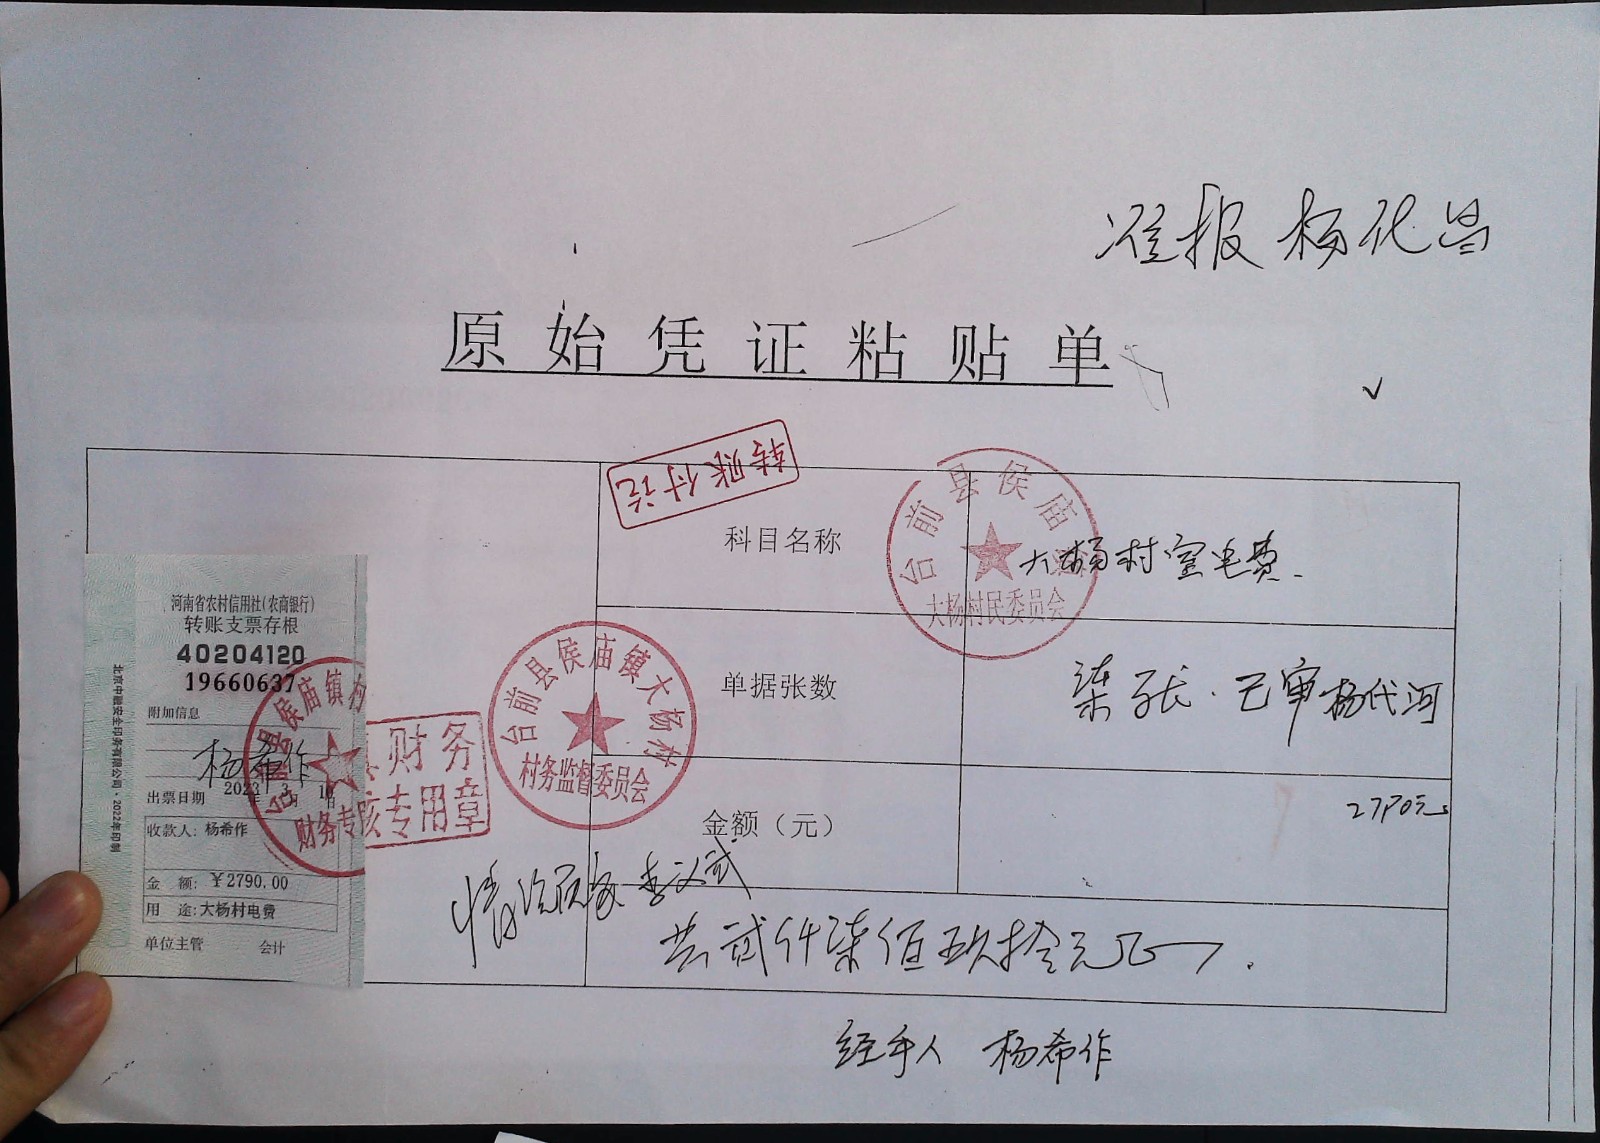 准报 杨代昌
原始凭证粘贴单
转账付讫
科目名称
大杨村室电费
台前县侯庙
大杨村民委员会
单据张数
柒张.已审 杨代河
金额（元）
2790元
台前县侯庙镇大杨村
村务监督委员会
河南省农村信用社(农商银行)
转账支票存根
40204120
19660637
附加信息
杨希作
出票日期 2023年3月10日
收款人: 杨希作
金 额: ￥2790.00
用 途: 大杨村电费
单位主管 会计
北京中融安全印务有限公司·2022年印制
侯庙镇村
财务专
财务
核专用章
情况属实 李义武
共贰仟柒佰玖拾元正
经手人 杨希作